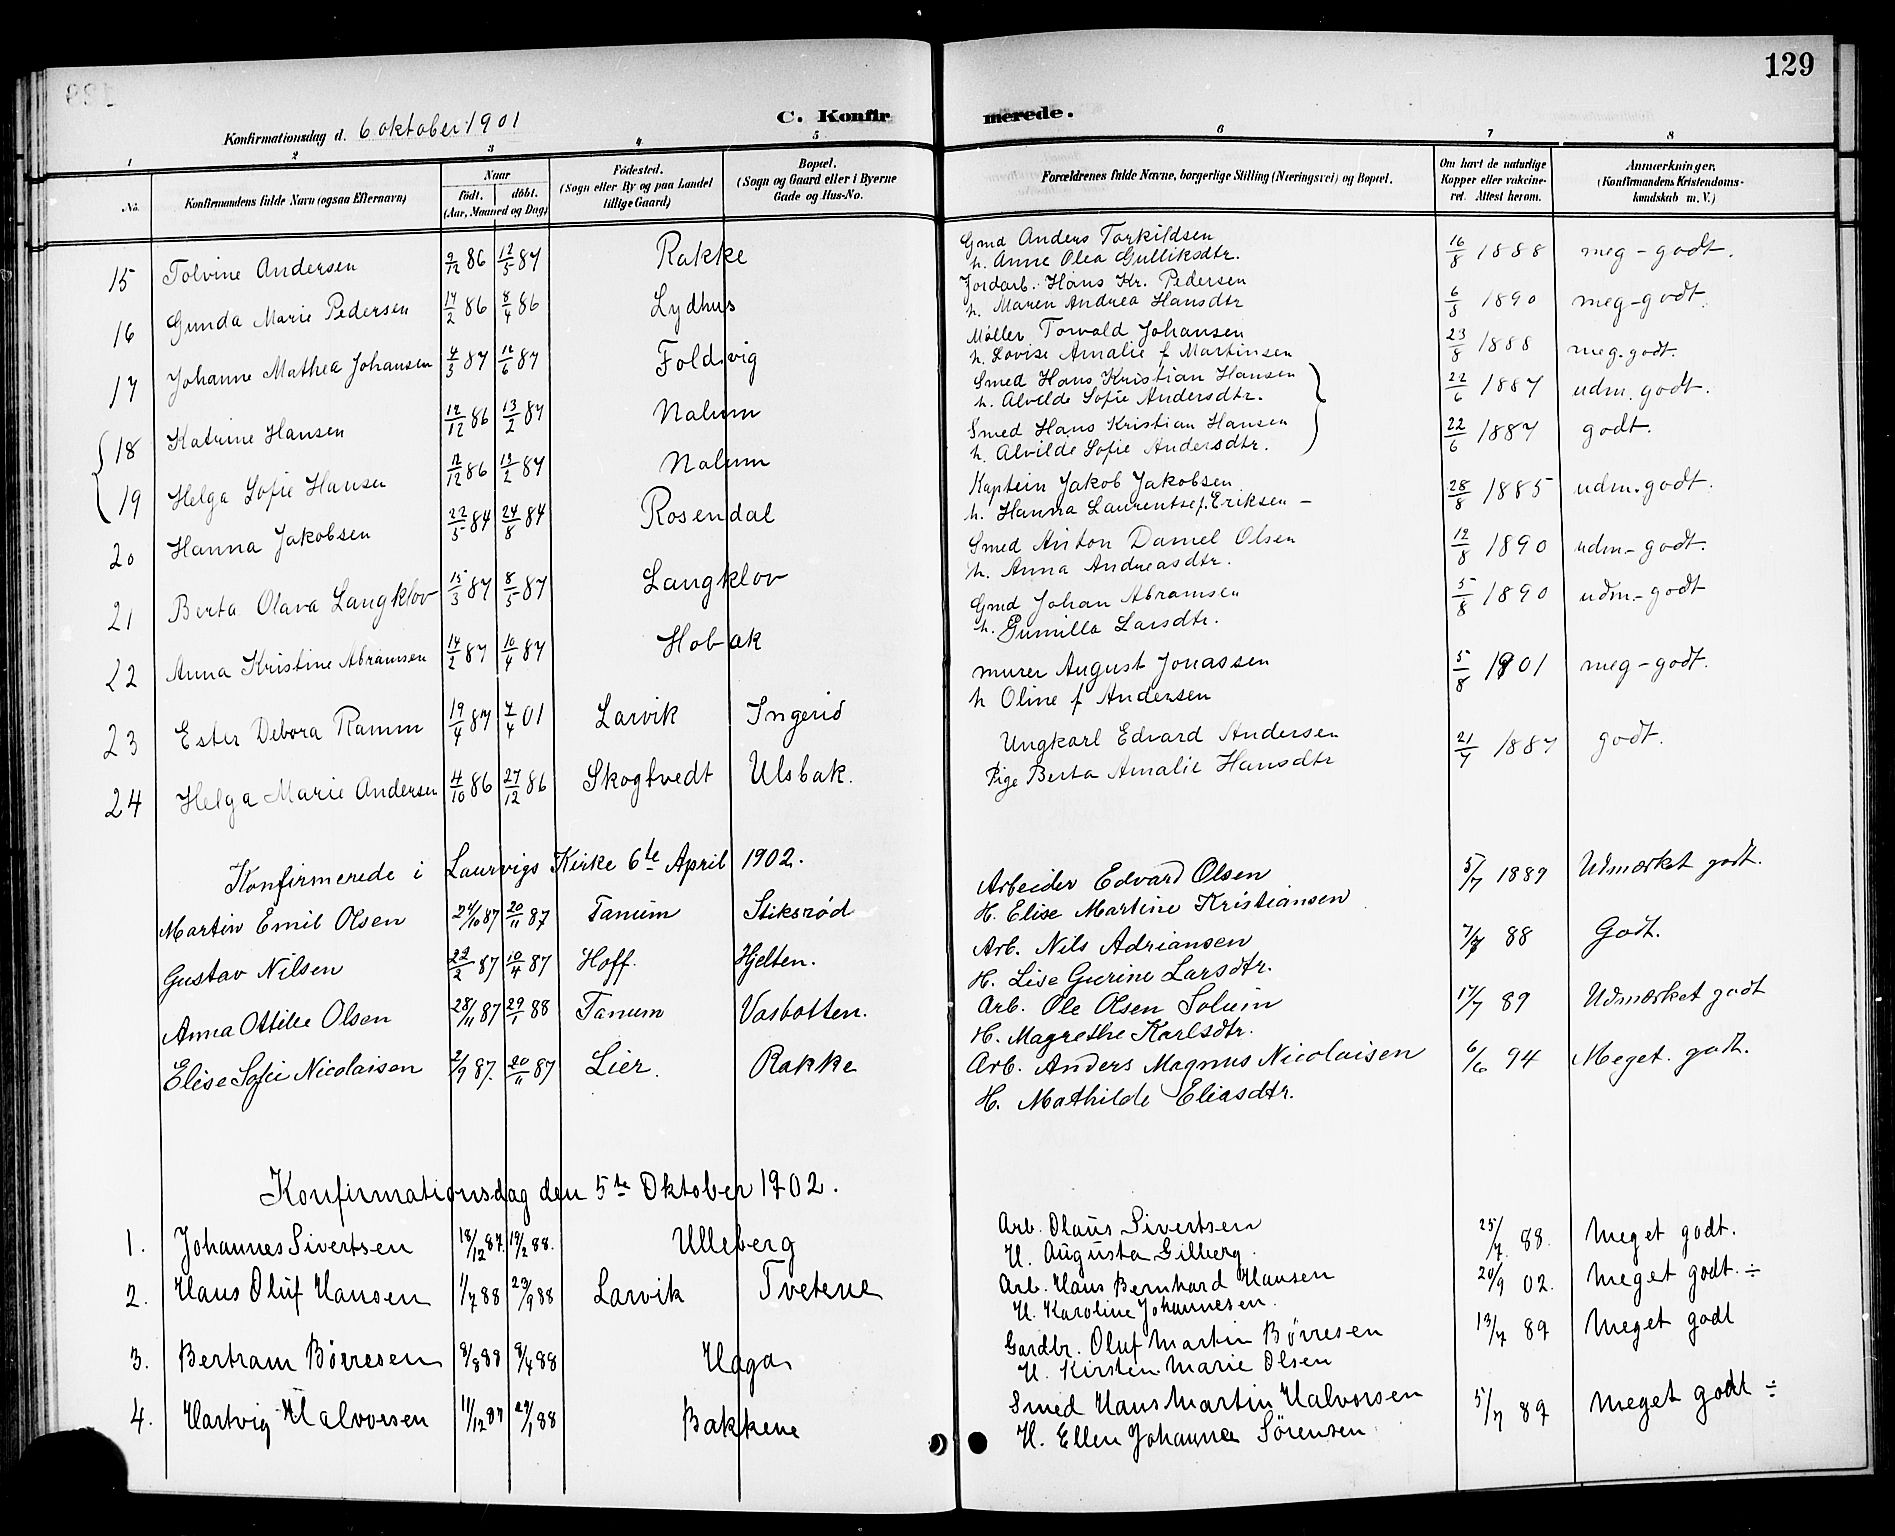 129
Konfirmationsdag d. 6 oktober 1901
C. Konfirmerede.
1 2 3 4 5 6 7 8
No. Konfirmandens fulde Navn (ogsaa Efternavn) Naar født. døbt. (Aar, Maaned og Dag) Fødested. (Sogn eller By og paa Landet tillige Gaard) Bopæl. (Sogn og Gaard eller i Byerne Gade og Hus-No. Forældrenes fulde Navne, borgerlige Stilling (Næringsvei) og Bopæl. Om havt de naturlige Kopper eller vaccineret. Attest herom. Anmærkninger, (Konfirmandens Kristendomskundskab m. V.)
15 Tolvine Andersen 9/12 86 12/5 87 Rakke Gmd Anders Torkildsen 16/8 1888 meg-godt.
h. Anne Olea Gulliksdtr.
16 Gunda Marie Pedersen 14/2 86 8/4 86 Lydhus Jordarb. Hans Kr. Pedersen 6/5 1890 meg-godt.
h. Maren Andrea Hansdtr
17 Johanne Mathea Johansen 4/3 87 12/6 87 Foldvig Møller Torvald Johansen 23/8 1888 meg.godt.
h. Lovise Amalie f Martinsen
18 Katrine Hansen 12/12 86 13/2 87 Nalum Smed Hans Kristian Hansen 22/6 1887 udm. godt.
h. Alvilde Sofie Andersdtr.
19 Helga Sofie Hansen 12/12 86 13/2 87 Nalum Smed Hans Kristian Hansen 22/6 1887 godt.
h. Alvilde Sofie Andersdtr.
20 Hanna Jakobsen 22/5 84 24/8 84 Rosendal Kaptein Jakob Jakobsen 28/8 1885 udm.godt.
h. Hanna Laurentse f. Eriksen –
21 Berta Olava Langklov 15/3 87 8/5 87 Langklov Smed Anton Daniel Olsen 19/8 1890 udm-godt.
h. Anna Andreasdtr.
22 Anna Kristine Abramsen 14/2 87 10/4 87 Hobak Gmd Johan Abramsen 5/8 1890 udm-godt
h. Gunilla Larsdtr.
23 Ester Debora Ramm 19/4 87 7/4 01 Larvik Ingerid murer August Jonassen 5/8 1901 meg-godt.
h Oline f Andersen
24 Helga Marie Andersen 4/10 86 27/12 86 Skogtvedt Ulsbak. Ungkarl Edvard Andersen 21/7 1887 godt.
Pige Berta Amalie Hansdtr
Konfirmerede i Laurvigs Kirke 6te April 1902.
Martin Emil Olsen 24/10 87 20/11 87 Tanum Stiksrød Arbeider Edvard Olsen 5/7 1889 Udmærket godt.
H. Elise Martine Kristiansen
Gustav Nilsen 22/2 87 10/4 87 Hoff. Hjelten. Arb. Nils Adriansen 7/8 88 Godt.
H. Lise Gurine Larsdtr.
Anna Ottilie Olsen 28/11 87 29/1 88 Tanum Vasbotten. Arb. Ole Olsen Solum 17/7 89 Udmærket godt
H. Magrethe Karlsdtr.
Elise Sofie Nicolaisen 2/9 87. 20/11 87 Lier. Rakke Arb. Anders Magnus Nicolaisen 6/6 94 Meget godt.
H. Mathilde Eliasdtr.
Konfirmationsdag den 5te Oktober 1902.
1. Johannes Sivertsen 18/12 87. 19/2 88. Ulleberg Arb. Olaus Sivertsen 25/7. 88. Meget godt.
H. Augusta Gilberg.
2. Hans Oluf Hansen 1/7 88 29/9 88 Larvik Tvetene Arb. Hans Bernhard Hansen 20/9 02. Meget godt. ÷
H. Karoline Johannesen.
3. Bertram Børresen 8/3 88 8/4 88 Haga Gardbr. Oluf Martin Børresen 13/7 89 Meget godt
H. Kirsten Marie Olsen
4. Hartvig Halvorsen 11/12 87 29/1 88 Bakkene Smed Hans Martin Halvorsen 5/7 89 Meget godt ÷
H. Ellen Johanna Sörensen